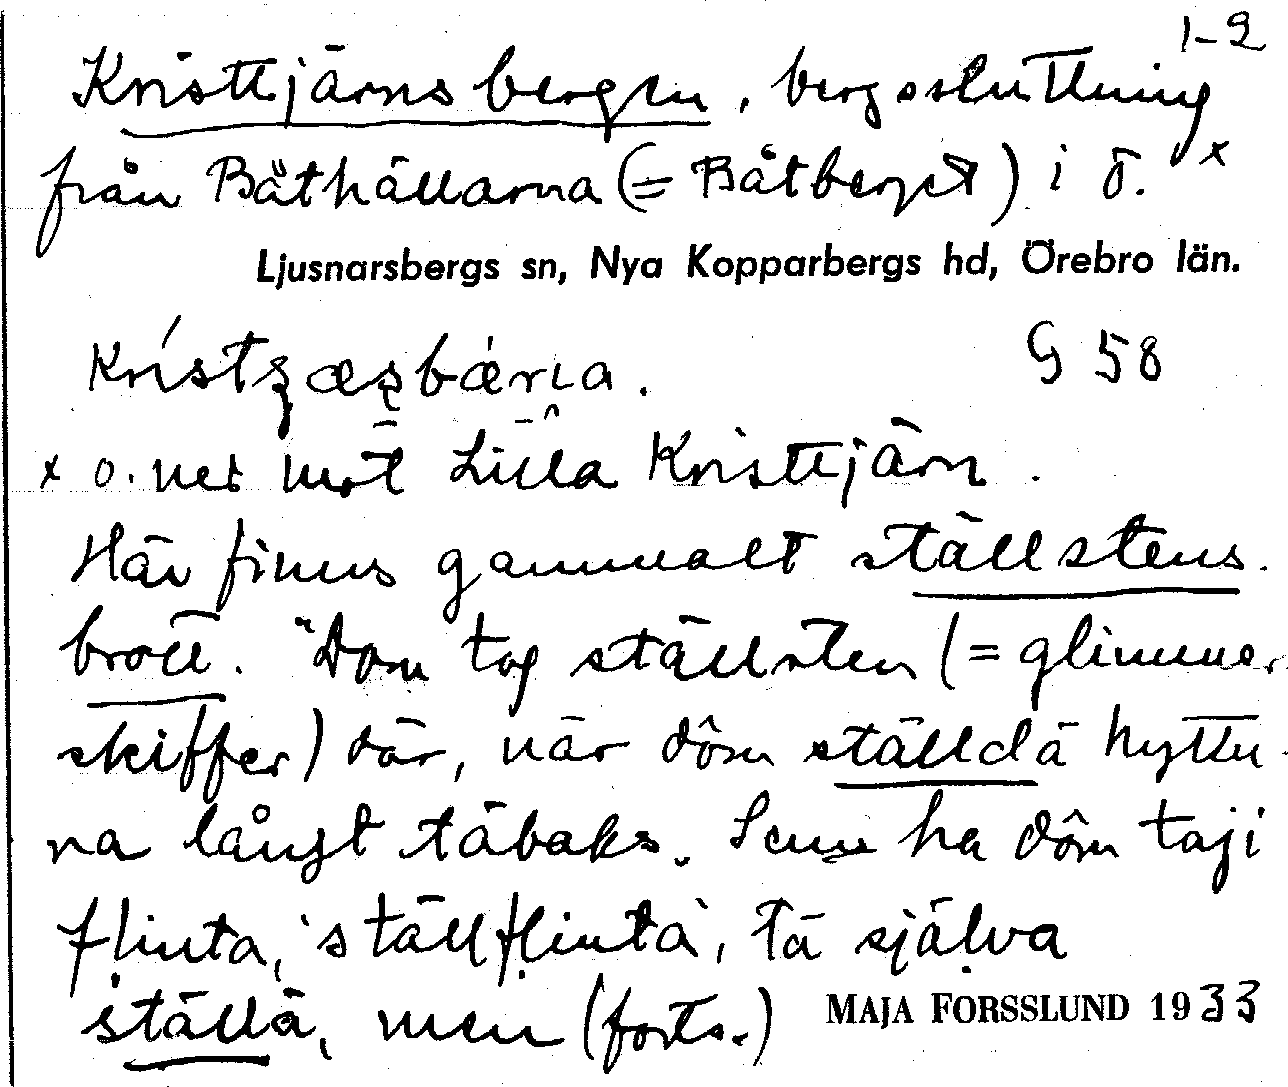 1-2
Kristtjärnsbergen, bergssluttning
från Båthällarna (= Båtberget) i ö. x
Ljusnarsbergs sn, Nya Kopparbergs hd, Örebro län.
G 58
x o. ner mot Lilla Kristtjärn.
Här finns gammalt ställstens-
brott. "Dom tog ställsten (= glimmer-
skiffer) där, när dôm ställdä hyttu-
na långt täbaks. Senn ha dôm taji
flinta, 'ställflintä', tä själva
ställä, men (forts.)
MAJA FORSSLUND 1933